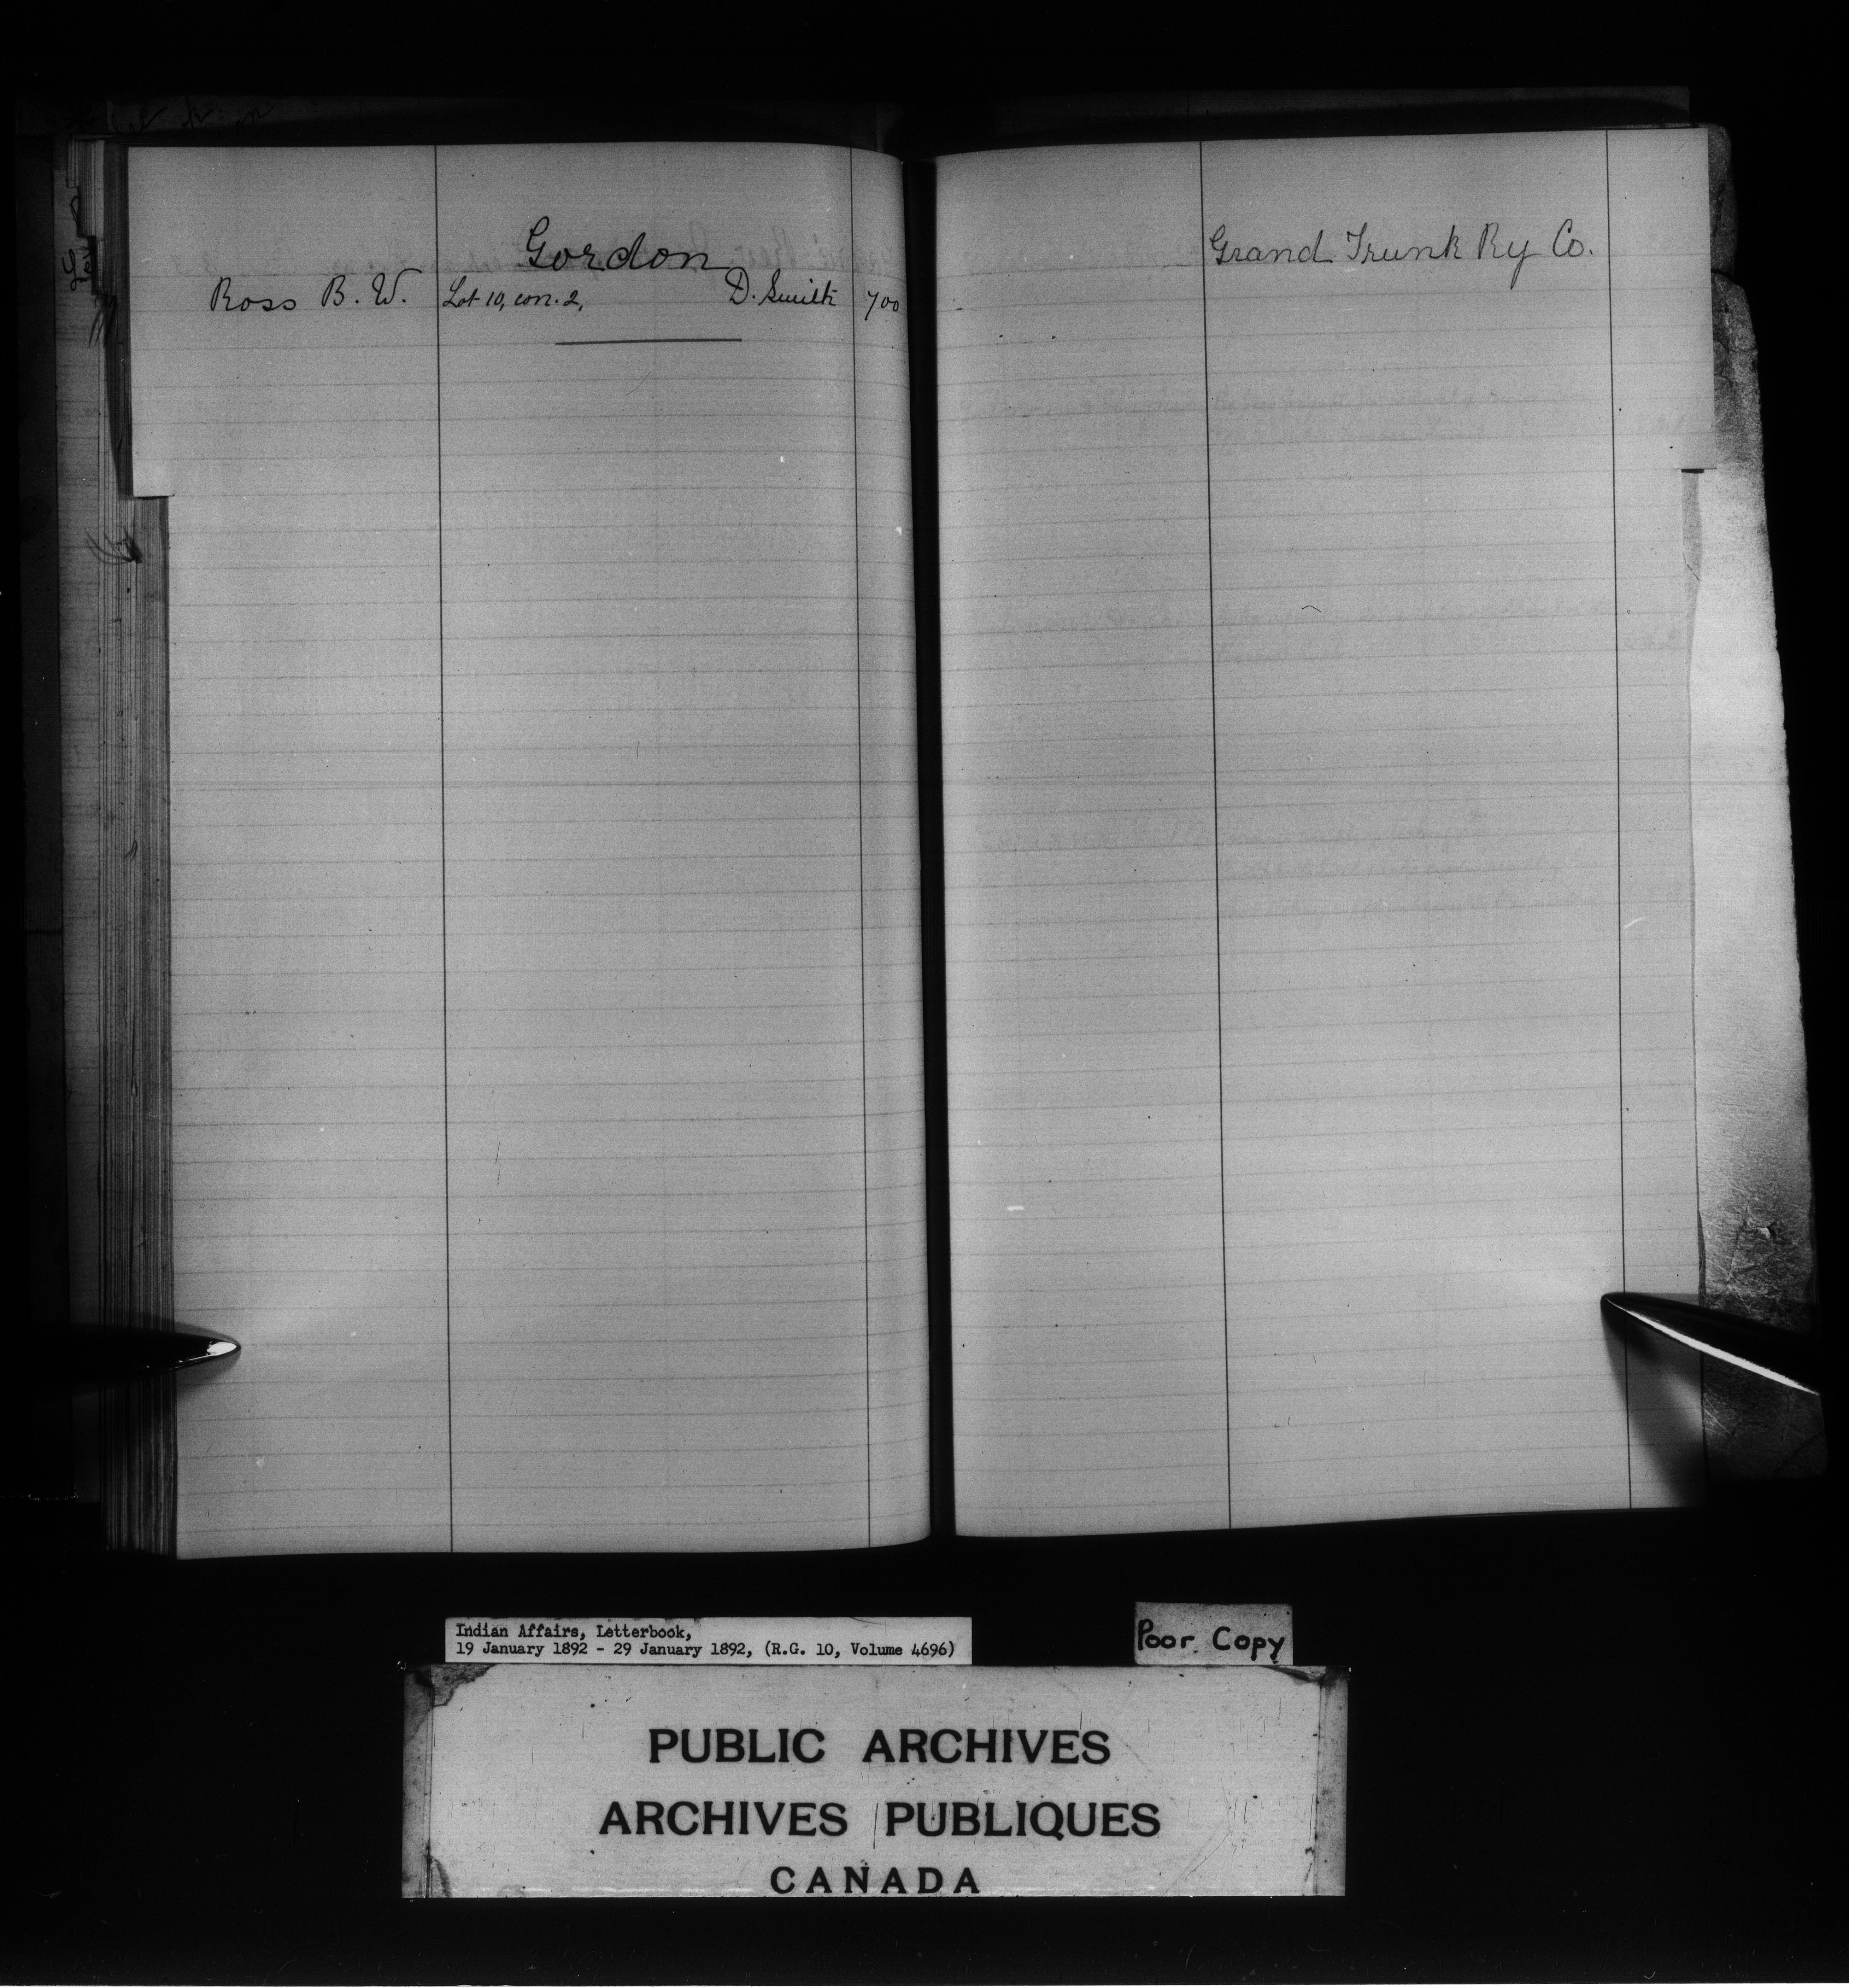 Gordon
Ross B. W. Lot 10, con. 2, D. Smith 700
Grand Trunk Ry Co.
Indian Affairs, Letterbook,
19 January 1892 - 29 January 1892, (R.G. 10, Volume 4696)
Poor Copy
PUBLIC ARCHIVES
ARCHIVES PUBLIQUES
CANADA